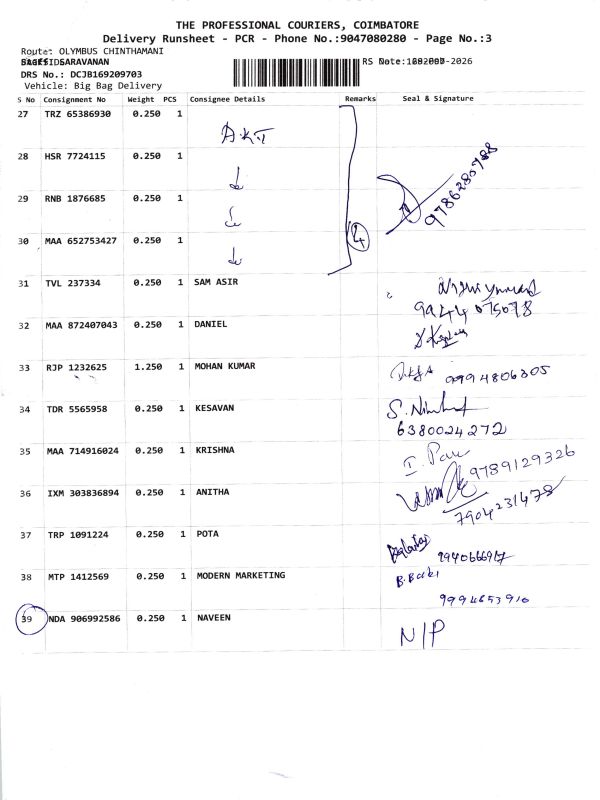 THE PROFESSIONAL COURIERS, COIMBATORE
Delivery Runsheet - PCR - Phone No.:9047080280 - Page No.:3
Route: OLYMBUS CHINTHAMANI
SARAVANAN
DRS No.: DCJB169209703
Vehicle: Big Bag Delivery
S No Consignment No Weight PCS Consignee Details Remarks Seal & Signature
27 TRZ 65386930 0.250 1 A.K.T
28 HSR 7724115 0.250 1
29 RNB 1876685 0.250 1 9786280788
30 MAA 652753427 0.250 1 4
31 TVL 237334 0.250 1 SAM ASIR
9944 075078
32 MAA 872407043 0.250 1 DANIEL
33 RJP 1232625 1.250 1 MOHAN KUMAR 9994806305
34 TDR 5565958 0.250 1 KESAVAN
6380024272
35 MAA 714916024 0.250 1 KRISHNA 9789129326
36 IXM 303836894 0.250 1 ANITHA
7904231478
37 TRP 1091224 0.250 1 POTA
38 MTP 1412569 0.250 1 MODERN MARKETING
9994653910
39 NDA 906992586 0.250 1 NAVEEN N/P